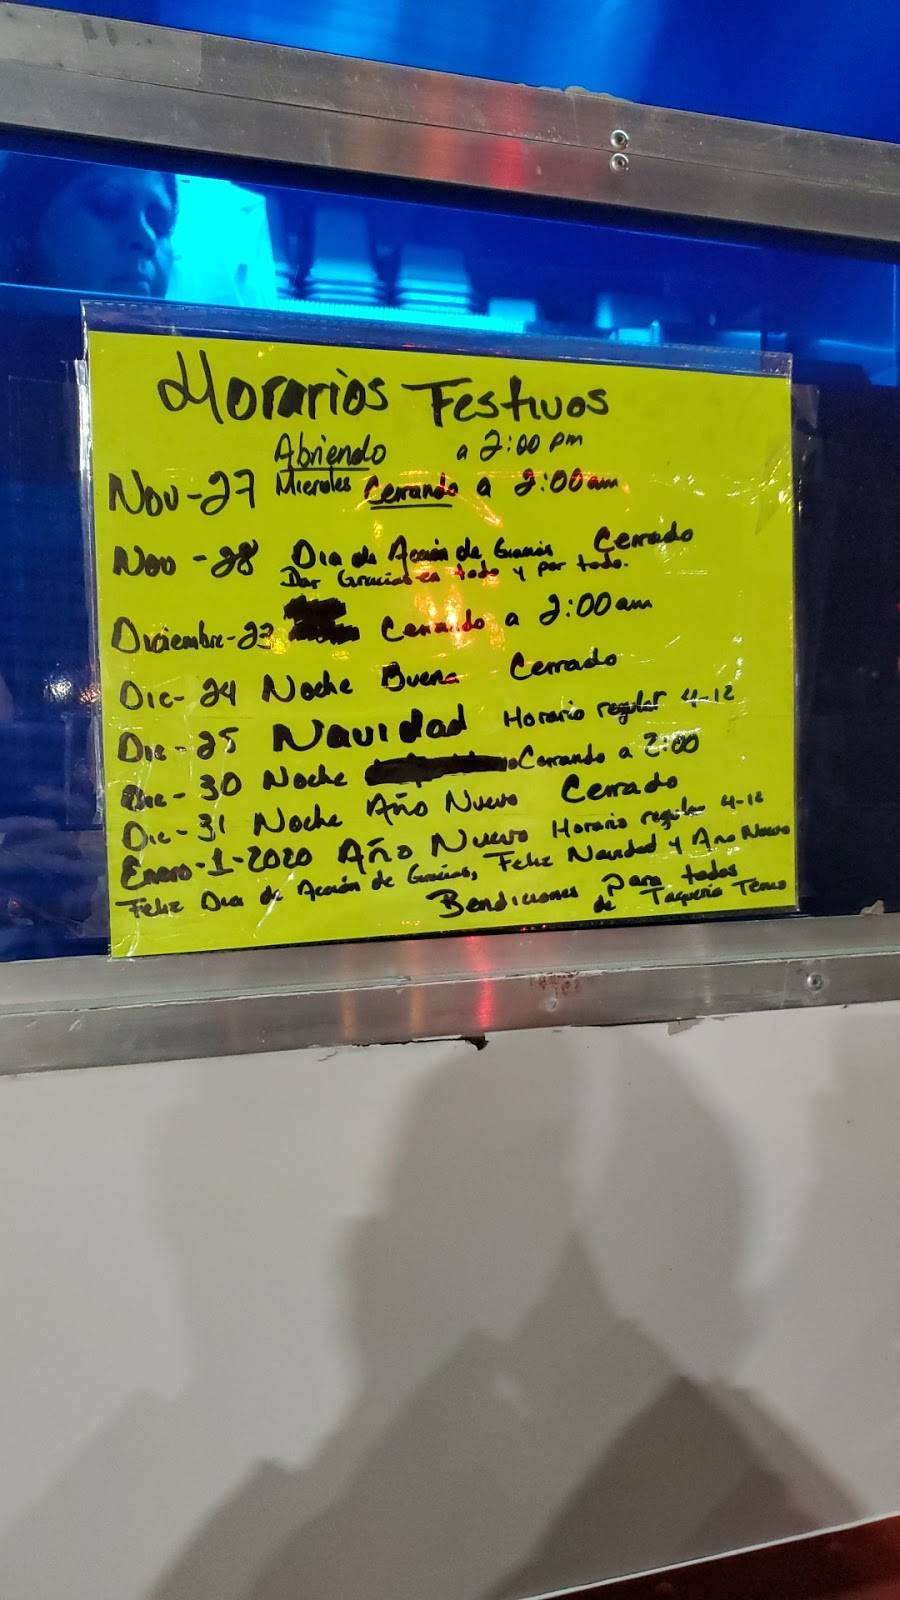 Horarios Festivos
Abriendo a 2:00 pm
Nov-27 Mierales Cerrando a 2:00am
Nov-28 Dia de Acción de Gracias Cerrado
Dar Gracias en todo y por todo.
Diciembre-23 Cerrando a 2:00am
Dic-24 Noche Buena Cerrado
Dic-25 Navidad Horario regular 4-12
Dic-30 Noche Cerrando a 2:00
Dic-31 Noche Año Nuevo Cerrado
Enero-1-2020 Año Nuevo Horario regular 4-12
Feliz Dia de Acción de Gracias, Feliz Navidad y Año Nuevo
Bendiciones para todos
de Taqueria